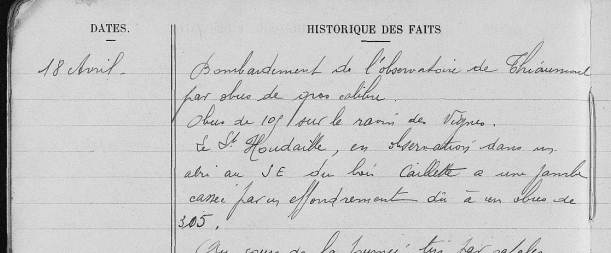 DATES.
HISTORIQUE DES FAITS
18 Avril.
Bombardement de l'observatoire de Thiaumont
par obus de gros calibre.
Obus de 105 sur le ravin des Vignes.
Le St Houdaille, en observation dans un
abri au SE du bois Caillette a une jambe
cassée par un effondrement dû à un obus de
305.
Au cours de la journée, tirs par rafales